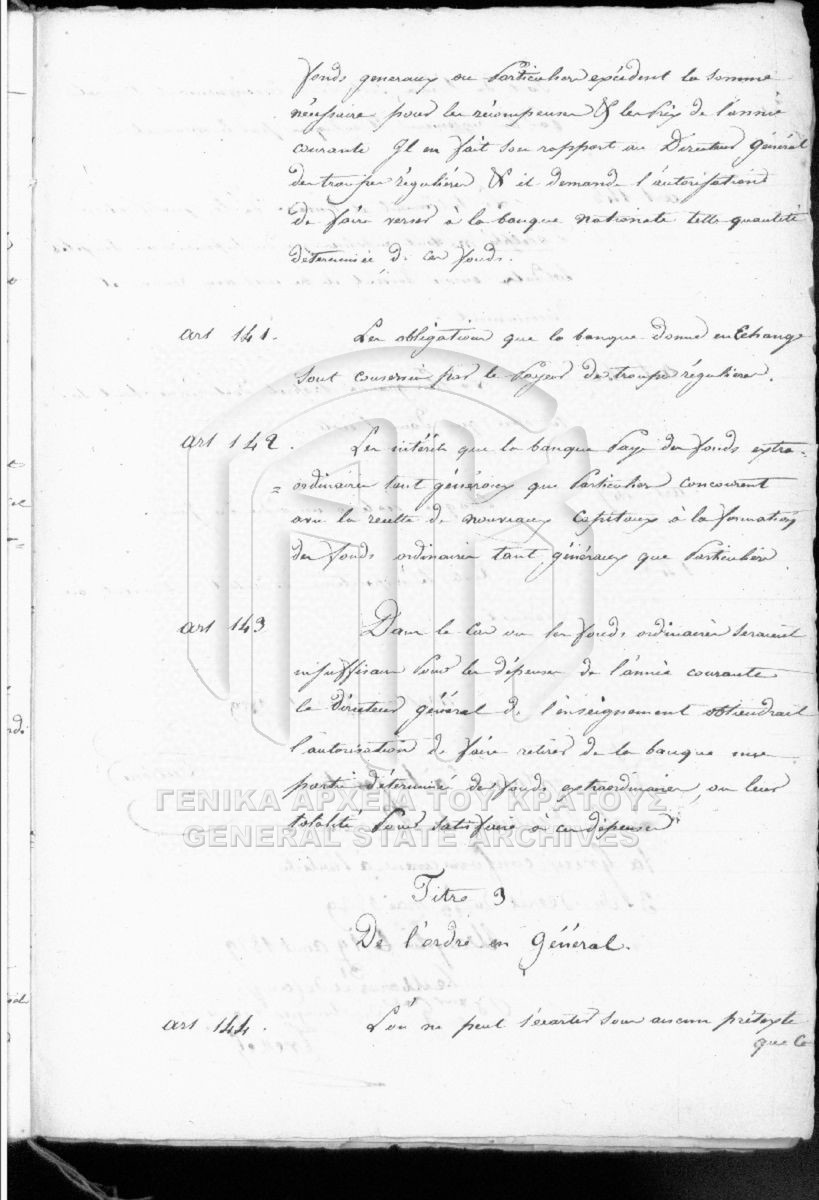 fonds generaux ou Particuliers excédent la somme
nécessaire pour les récompenses & les Prix de l'année
courante Il en fait son rapport au Directeur Général
des troupes régulières & il demande l'autorisation
de faire verser à la banque nationale telle quantité
déterminée de ces fonds.
art 141. Les obligations que la banque donne en Echange
sont conservées par le Payeur des troupes régulieres.
art 142. Les intérêts que la banque Paye des fonds extra=
=ordinaires tant généraux que Particuliers concourent
avec la recette de nouveaux Capitaux à la formation
des fonds ordinaires tant généraux que Particuliers
art 143 Dans le Cas ou les fonds ordinaires seraient
insuffisans Pour les dépenses de l'année courante
le Directeur général de l'enseignement obtiendrait
l'autorisation de faire retirer de la banque une
partie déterminée des fonds extraordinaires, ou leur
totalité Pour satisfaire à ces dépenses
ΓΕΝΙΚΑ ΑΡΧΕΙΑ ΤΟΥ ΚΡΑΤΟΥΣ
GENERAL STATE ARCHIVES
Titre 3
De l'ordre en Général.
art 144. L'on ne peut s'écarter sous aucun prétexte
que ce